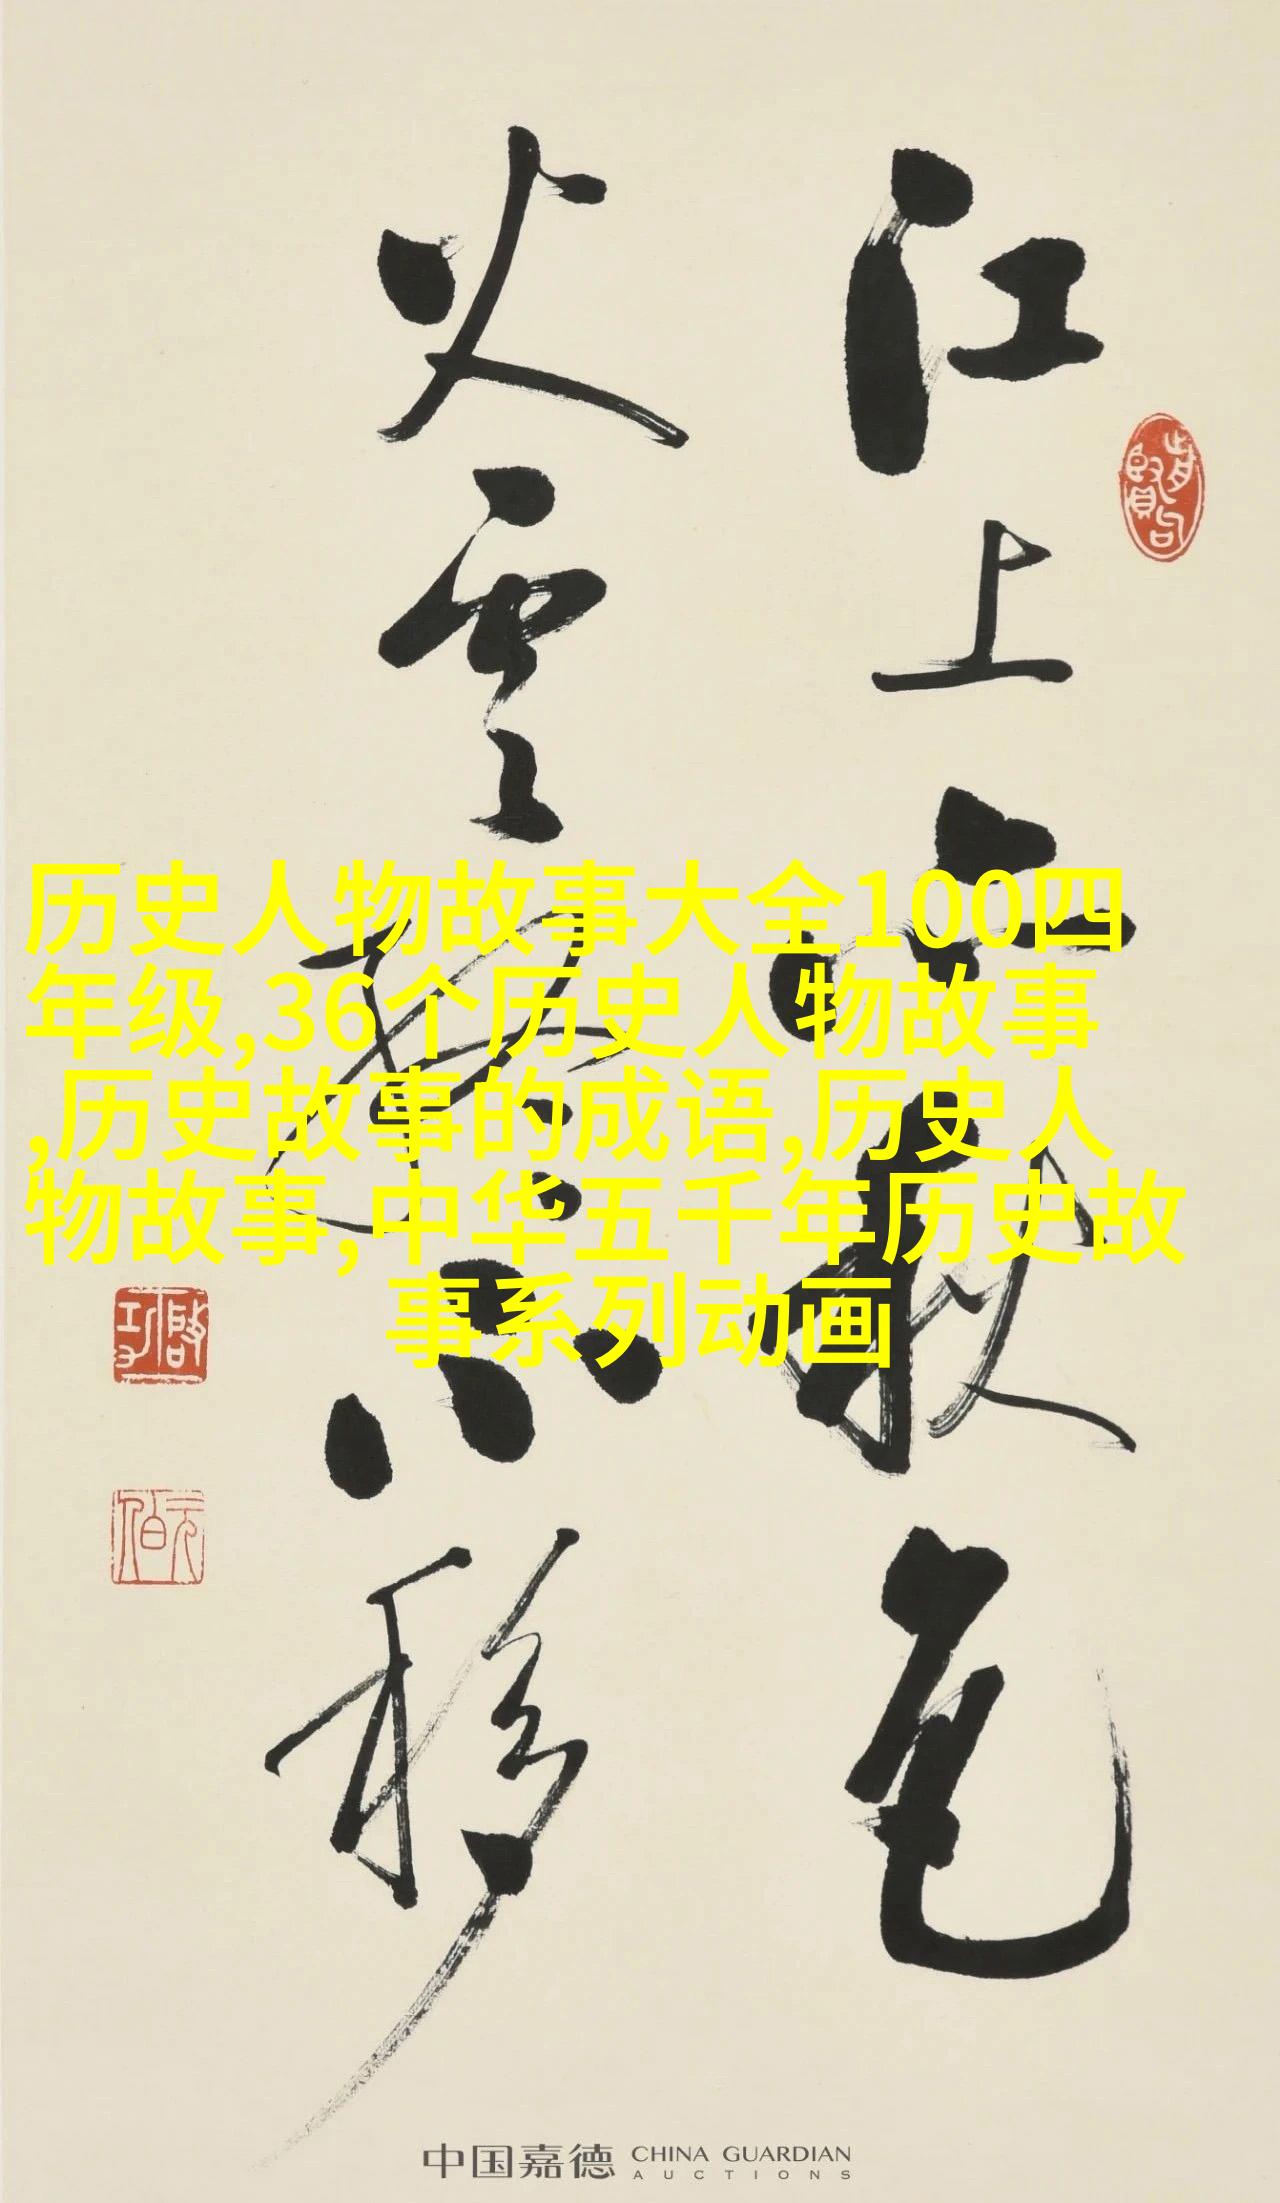 江上亦秋色
火雲終不移
历史人物故事大全100四
年级,36个历史人物故事
,历史故事的成语,历史人
物故事,中华五千年历史故
事系列动画
啓功
元伯
中国嘉德 CHINA GUARDIAN
AUCTIONS